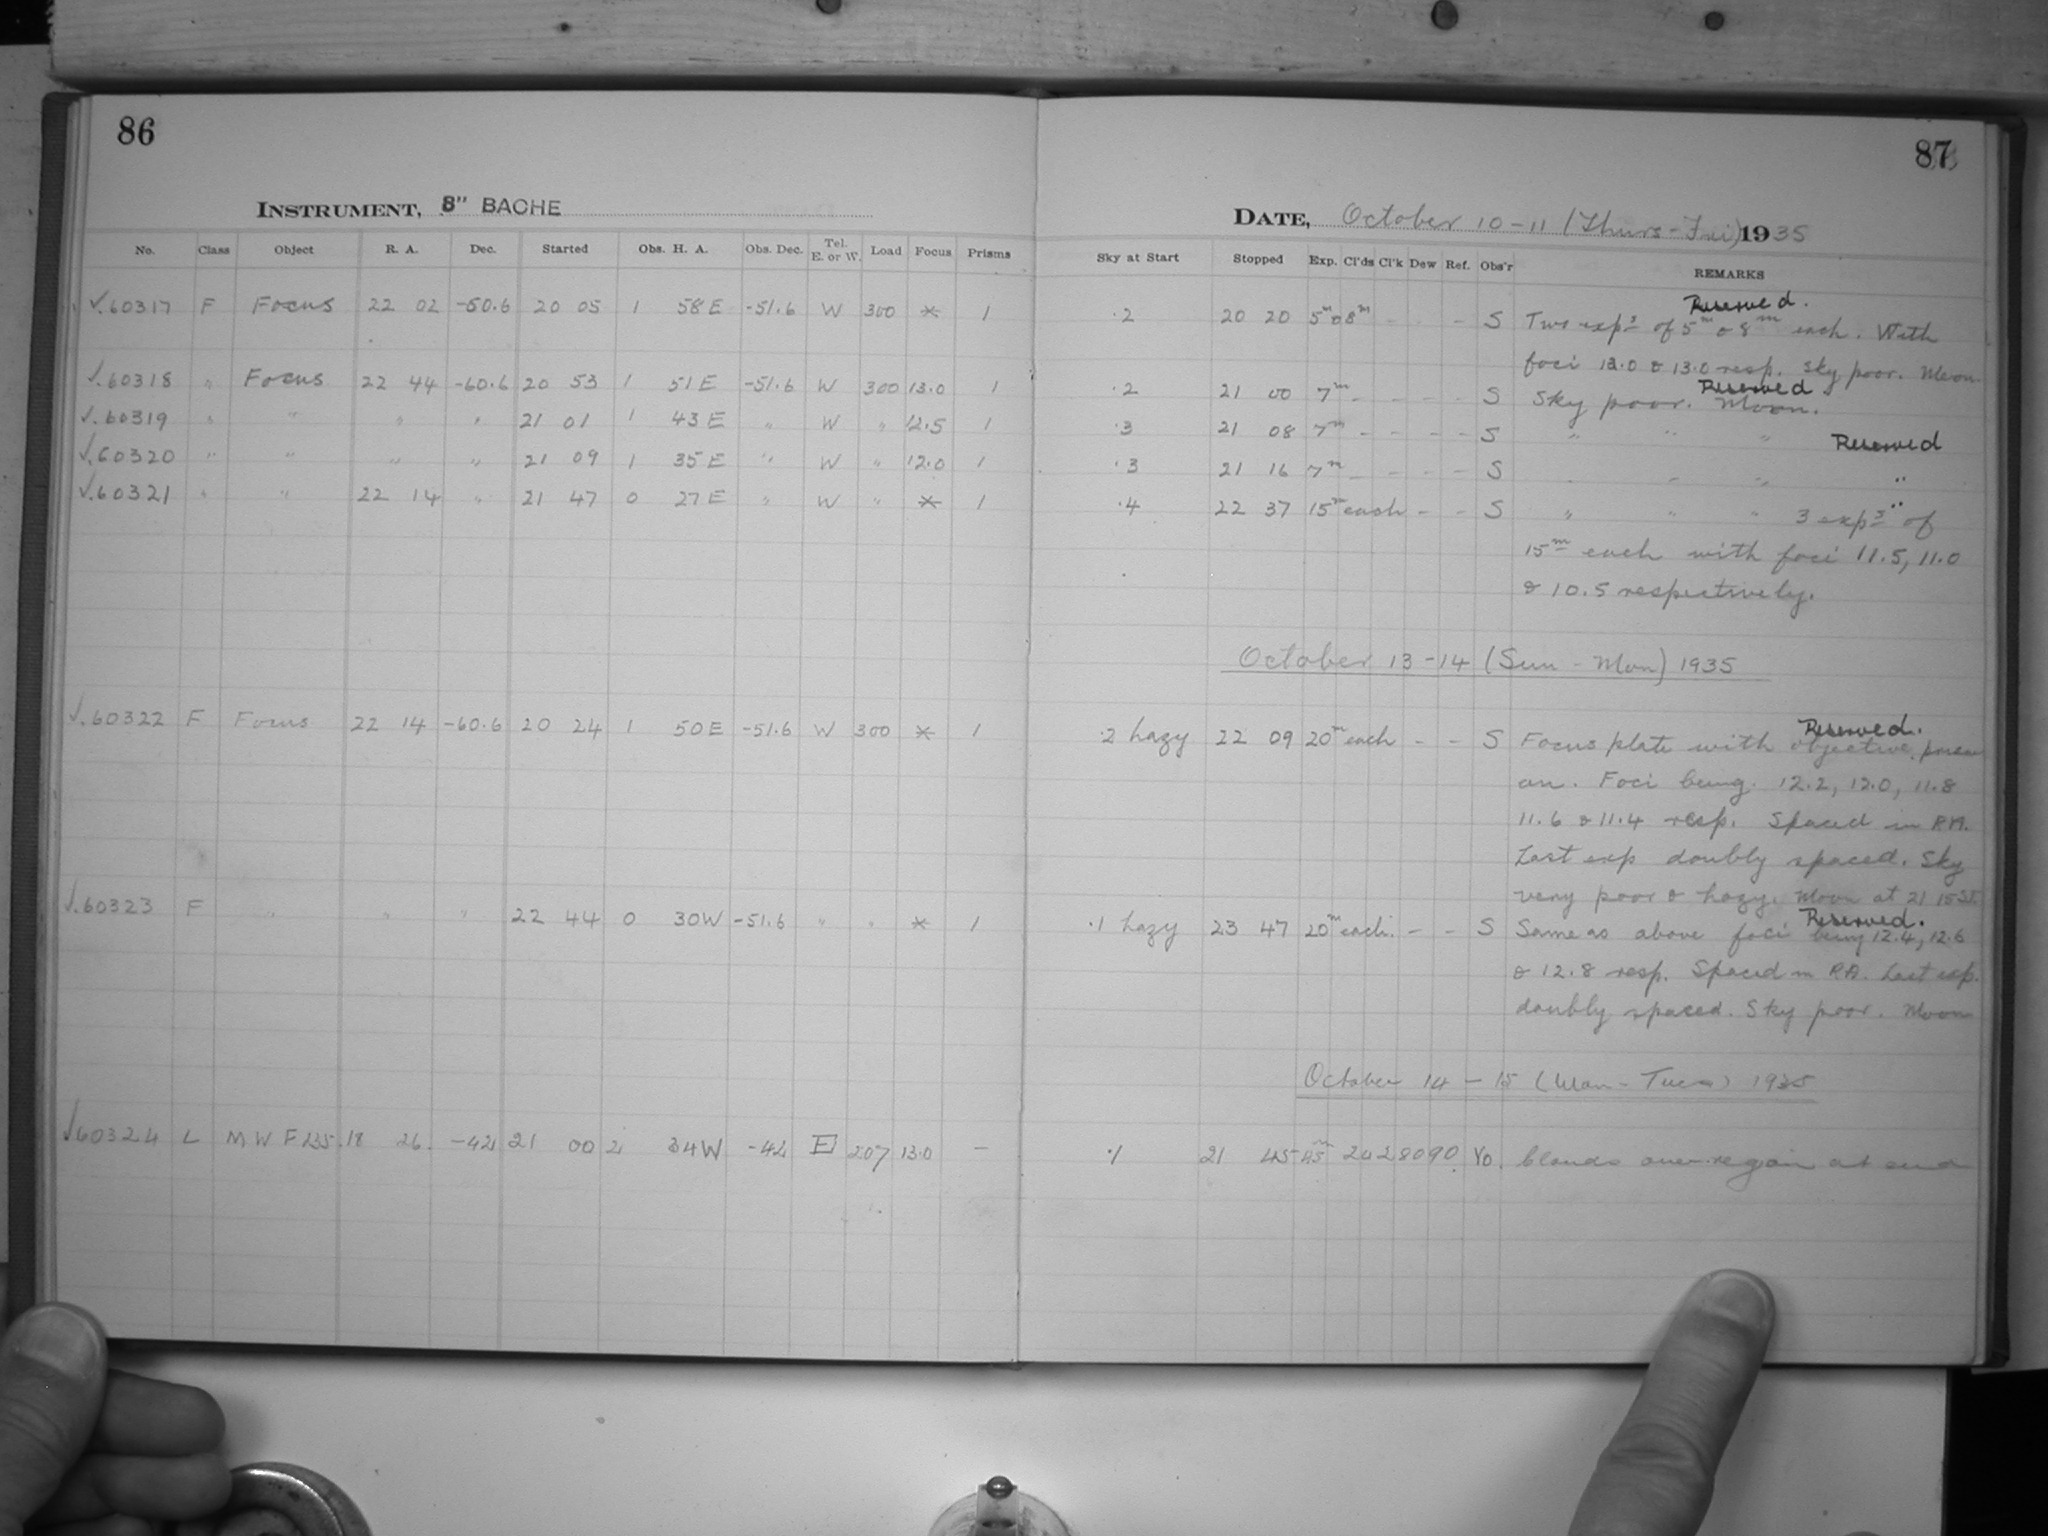 86
INSTRUMENT, 8" BACHE
No. Class Object R. A. Dec. Started Obs. H. A. Obs. Dec. Tel. E. or W. Load Focus Prisms
√.60317 F Focus 22 02 -50.6 20 05 1 58 E -51.6 W 300 * 1
√.60318 " Focus 22 44 -60.6 20 53 1 51 E -51.6 W 300 13.0 1
√.60319 " " " " 21 01 1 43 E " W " 12.5 1
√.60320 " " " " 21 09 1 35 E " W " 12.0 1
√.60321 " " 22 14 " 21 47 0 27 E " W " * 1
√.60322 F Focus 22 14 -60.6 20 24 1 50 E -51.6 W 300 * 1
√.60323 F " " " 22 44 0 30 W -51.6 " " * 1
√60324 L M W F 235 18 26. -42 21 00 2 34 W -42 E 207 13.0 —
87
DATE, October 10-11 (Thurs-Fri) 1935
Sky at Start Stopped Exp. Cl'ds Cl'k Dew Ref. Obs'r REMARKS
Reserved.
.2 20 20 5m & 8m - - - S Two exps of 5m & 8m each. With
foci 13.0 resp. Sky poor. Moon.
Reserved
.2 21 00 7m - - - - S Sky poor. Moon.
.3 21 08 7m - - - - S " " " Reserved
.3 21 16 7m - - - - S " " " "
.4 22 37 15m each - - S " " " " 3 exps of
15m each with foci 11.5, 11.0
& 10.5 respectively.
October 13-14 (Sun - Mon) 1935
Reserved.
.2 hazy 22 09 20m each - - S Focus plate with objective prism
on. Foci being. 12.2, 12.0, 11.8
11.6 & 11.4 resp. Spaced in R.A.
Last exp doubly spaced. Sky
very poor & hazy. Moon at 21 15
Reserved.
.1 hazy 23 47 20m each. - - S Same as above foci being 12.4, 12.6
& 12.8 resp. Spaced in R.A. Last exp.
doubly spaced. Sky poor. Moon
October 14 - 15 (Mon - Tues) 1935
.1 21 45 45m 20 28 0 90 Yo. Clouds over region at end